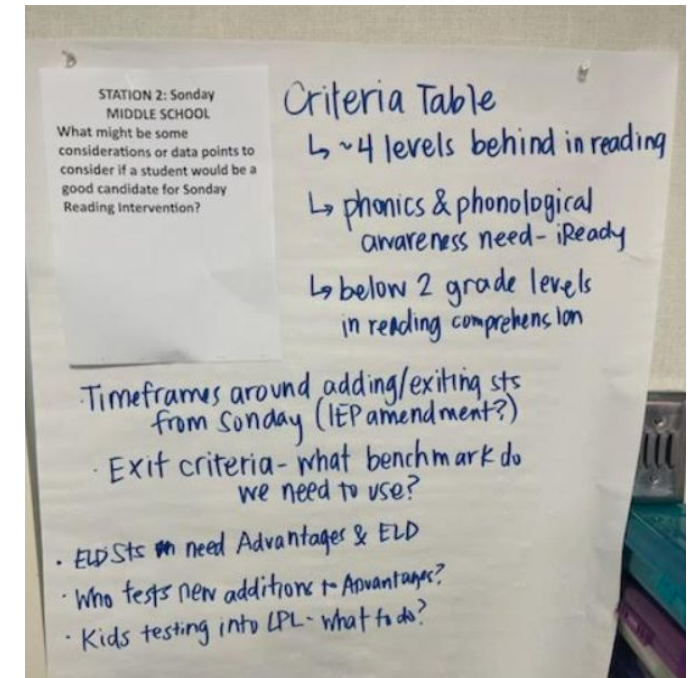 STATION 2: Sonday
MIDDLE SCHOOL
What might be some
considerations or data points to
consider if a student would be a
good candidate for Sonday
Reading Intervention?
Criteria Table
↳ ~4 levels behind in reading
↳ phonics & phonological
awareness need - iReady
↳ below 2 grade levels
in reading comprehension
· Timeframes around adding/exiting sts
from Sonday (IEP amendment?)
· Exit criteria - what benchmark do
we need to use?
· ELD sts need Advantages & ELD
· Who tests new additions to Advantages?
· Kids testing into LPL - what to do?